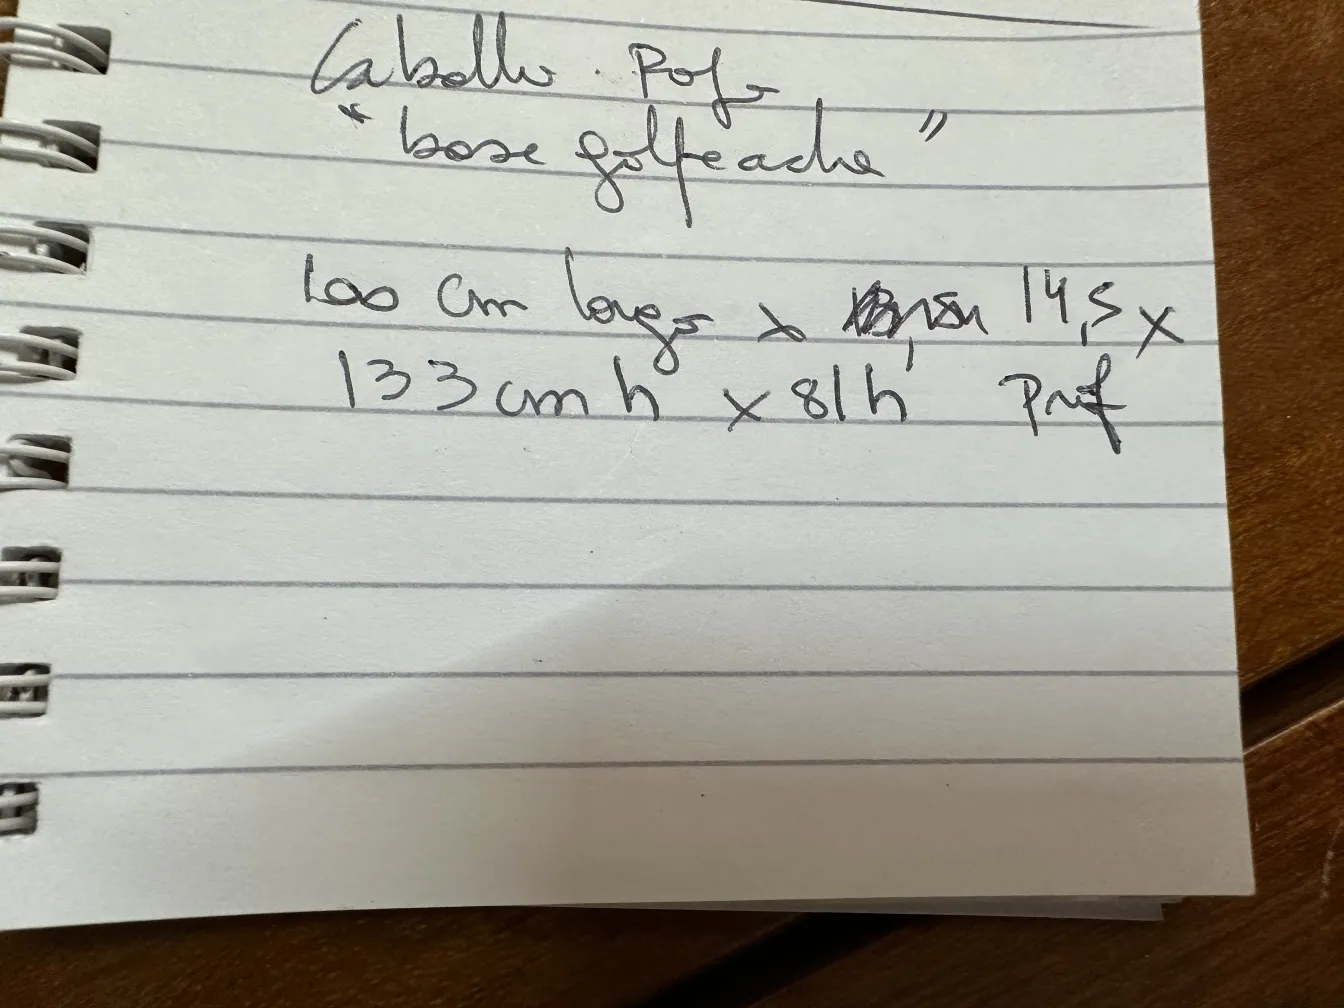 Caballo Rojo
"base golpeada"
100 cm largo x 14,5 x
133 cm h x 81 h Prof